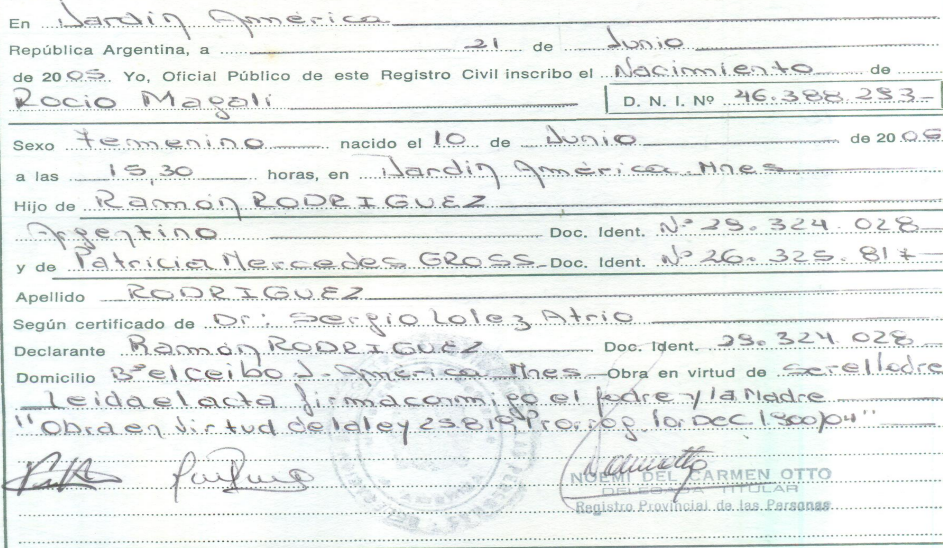 En Jardín América
República Argentina, a 21 de Junio
de 2005. Yo, Oficial Público de este Registro Civil inscribo el Nacimiento de
Rocio Magali D. N. I. Nº 46.388.293-
Sexo Femenino nacido el 10 de Junio de 2005
a las 15,30 horas, en Jardín América Mnes
Hijo de Ramón RODRIGUEZ
Argentino Doc. Ident. Nº 29. 324. 028
y de Patricia Mercedes GROSS Doc. Ident. Nº 26. 325. 817
Apellido RODRIGUEZ
Según certificado de Dr: Sergio Lolez Atrio
Declarante Ramón RODRIGUEZ Doc. Ident. 29. 324. 028
Domicilio Bº el ceibo J. América Mnes Obra en virtud de ser el Padre
Leida el acta firma conmigo el Padre y la Madre
"Obra en virtud de la ley 25.819, Prorrog. por Dec. 1300/04"
NOEMI DEL CARMEN OTTO
DELEGADA TITULAR
Registro Provincial de las Personas